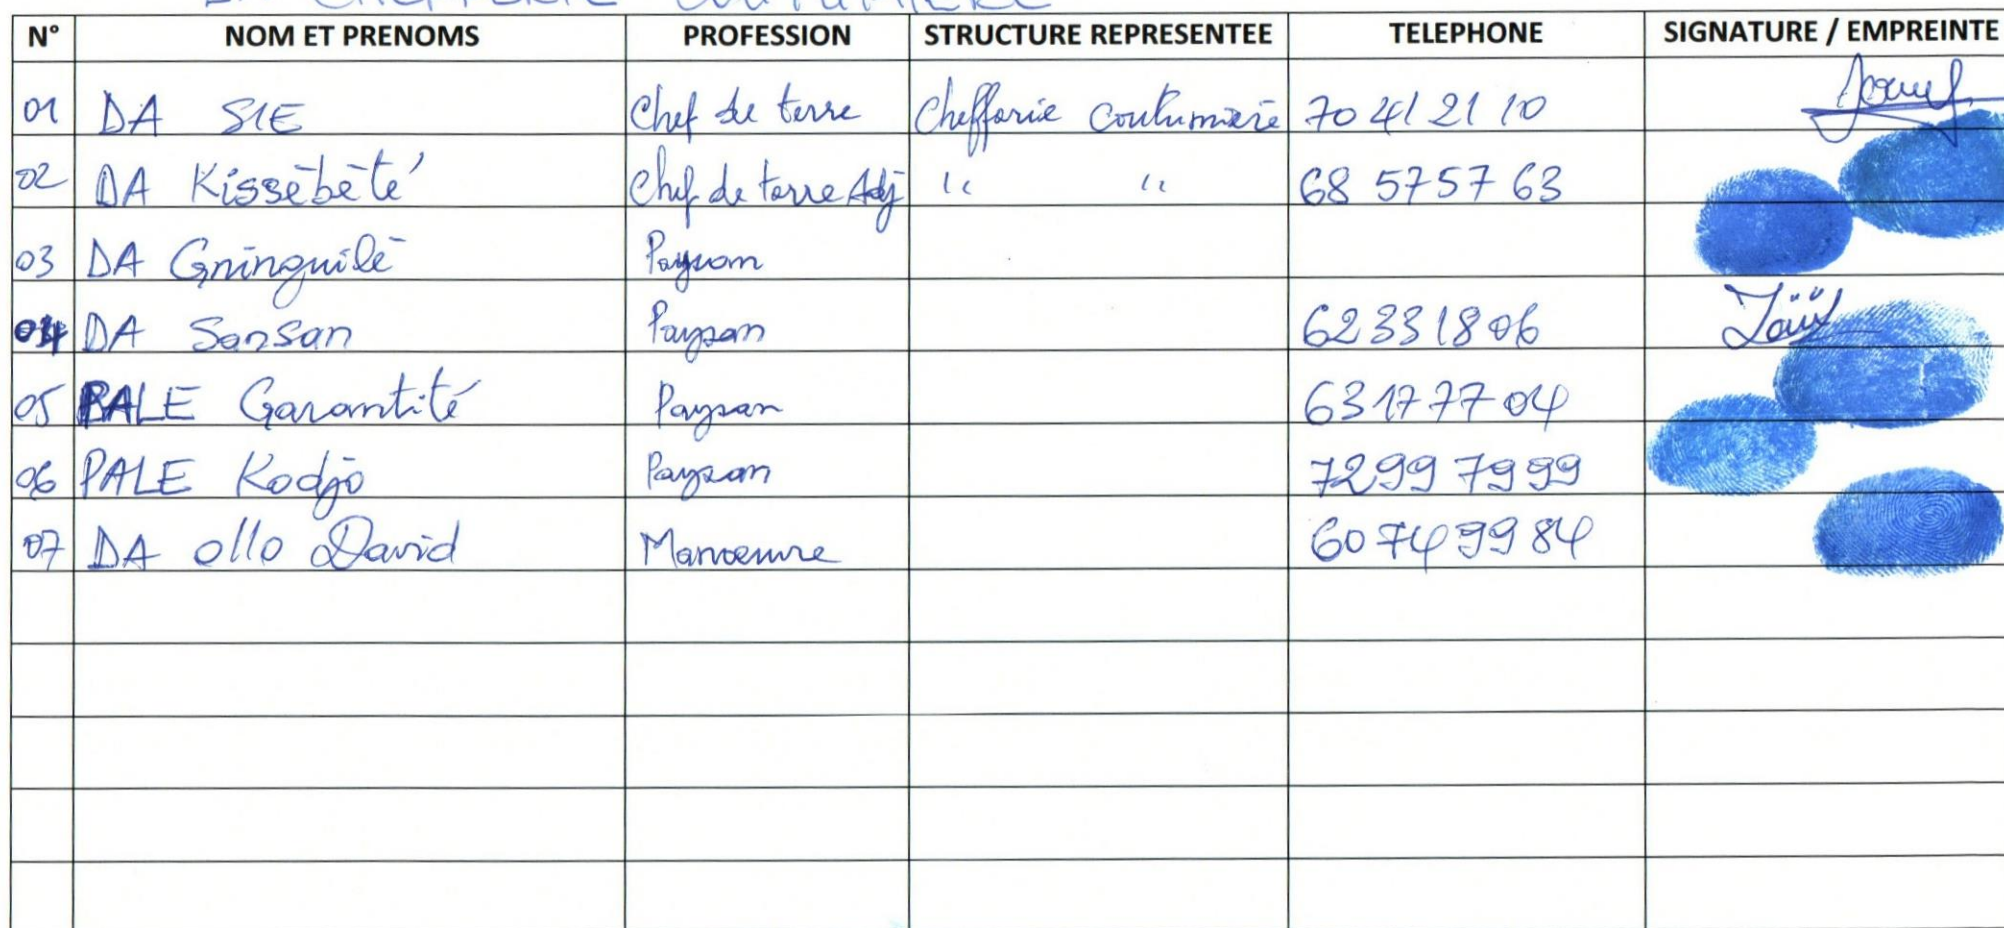 CHEFFERIE COUTUMIERE
N° NOM ET PRENOMS PROFESSION STRUCTURE REPRESENTEE TELEPHONE SIGNATURE / EMPREINTE
01 DA SIE Chef de terre Chefferie coutumière 70 41 21 10
02 DA Kissèbèté Chef de terre Adj " " 68 57 57 63
03 DA Gninguilè Paysan
04 DA Sansan Paysan 62 33 18 06
05 PALE Garantité Paysan 63 17 77 04
06 PALE Kodjo Paysan 72 99 79 99
07 DA ollo David Manoeuvre 60 74 99 84